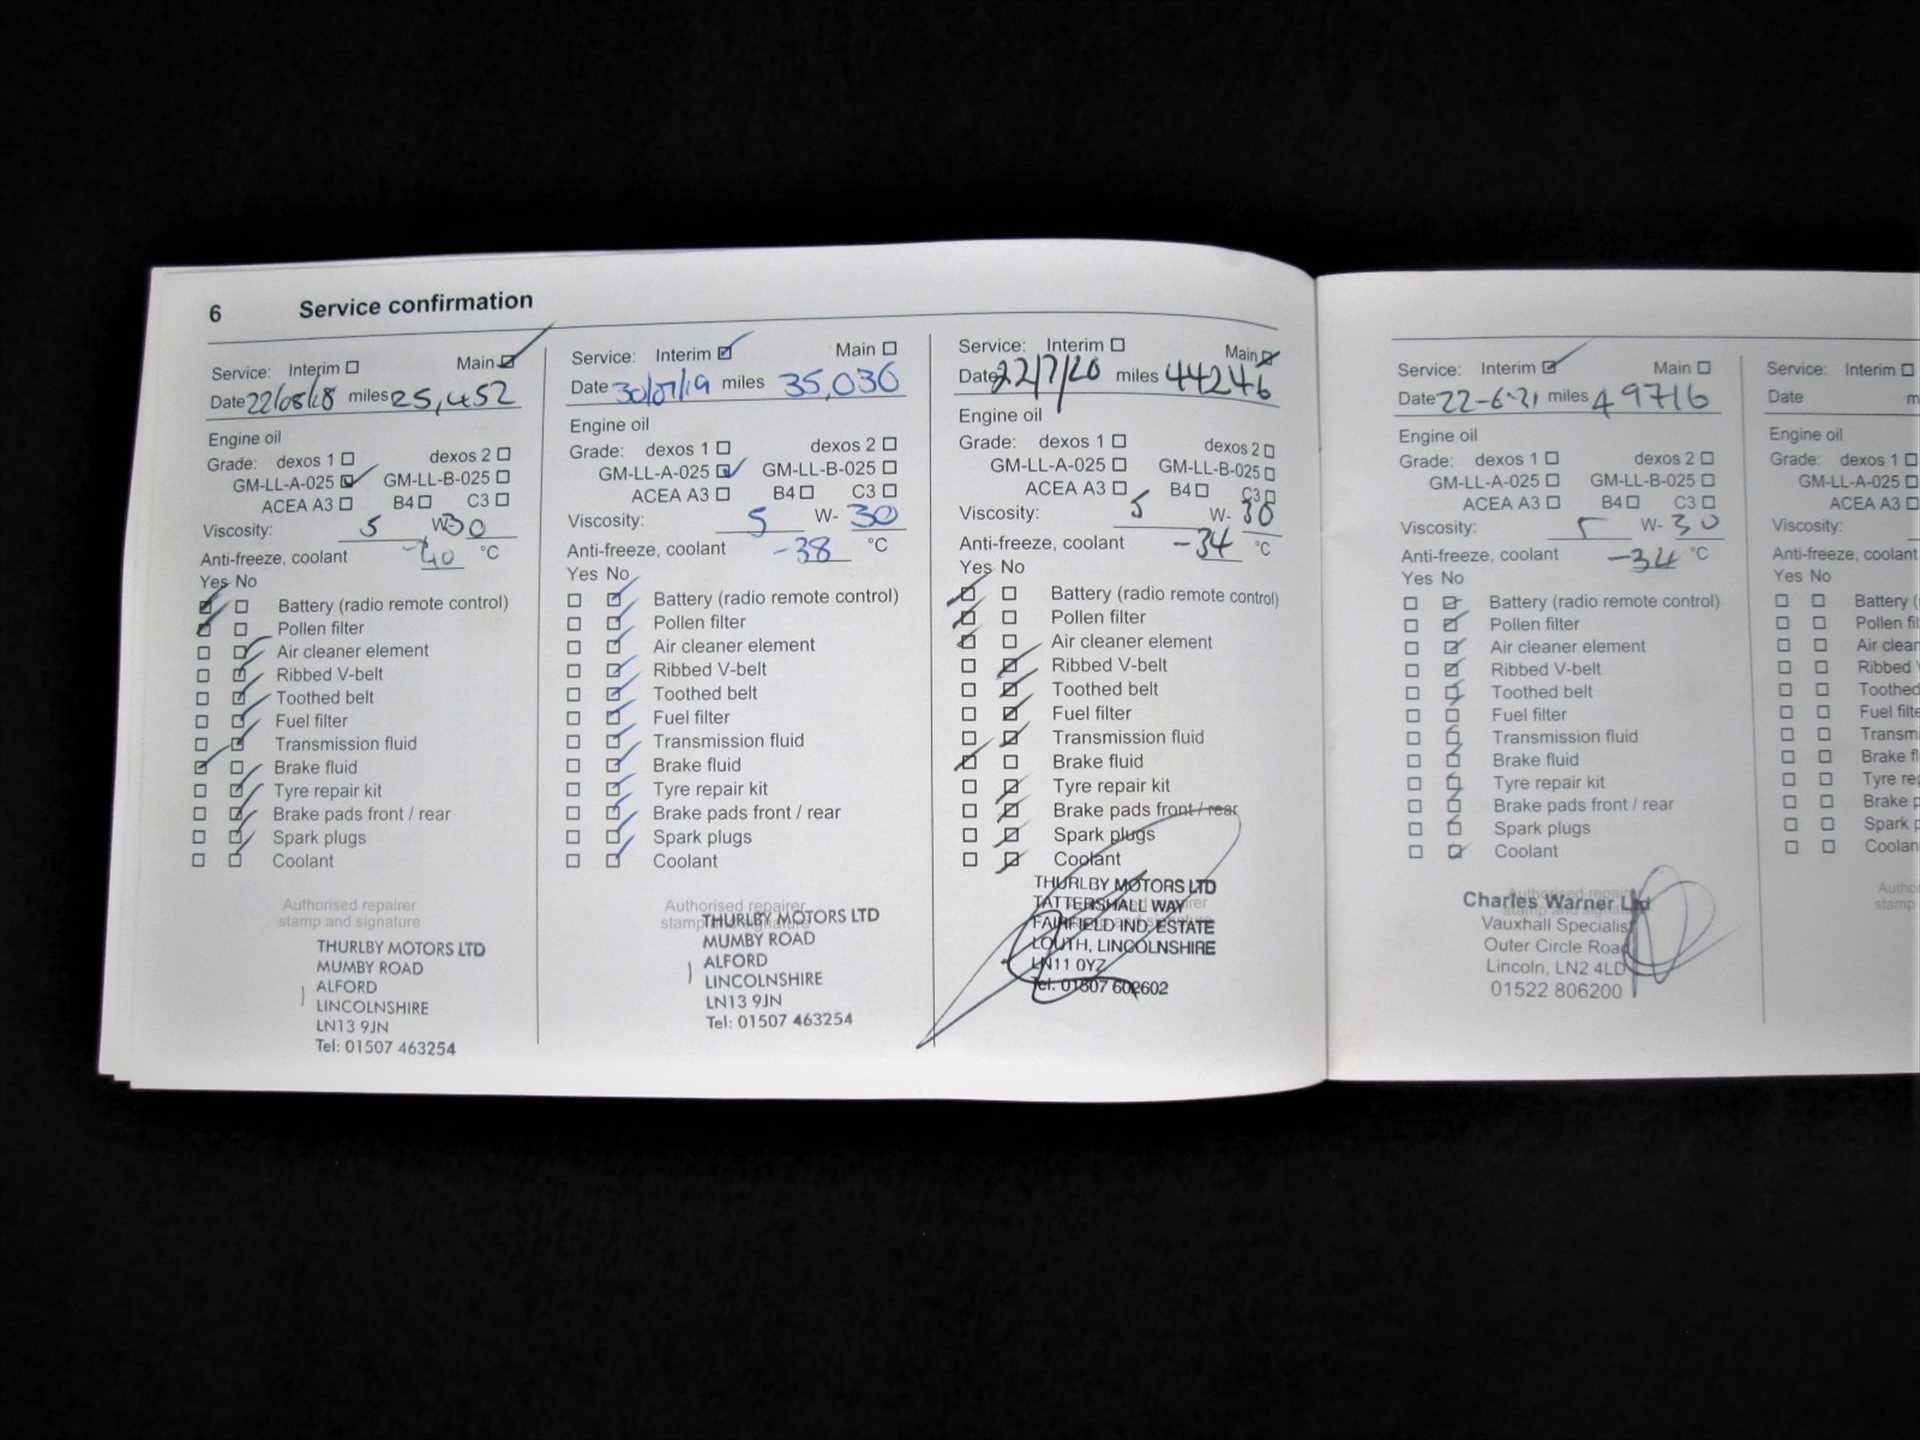 6 Service confirmation
Service: Interim Main
Date 22/08/18 miles 25,452
Engine oil
Grade: dexos 1 dexos 2
GM-LL-A-025 GM-LL-B-025
ACEA A3 B4 C3
Viscosity: 5 W-30
Anti-freeze, coolant -40 °C
Yes No
Battery (radio remote control)
Pollen filter
Air cleaner element
Ribbed V-belt
Toothed belt
Fuel filter
Transmission fluid
Brake fluid
Tyre repair kit
Brake pads front / rear
Spark plugs
Coolant
Authorised repairer
stamp and signature
THURLBY MOTORS LTD
MUMBY ROAD
ALFORD
LINCOLNSHIRE
LN13 9JN
Tel: 01507 463254
Service: Interim Main
Date 30/07/19 miles 35,036
Engine oil
Grade: dexos 1 dexos 2
GM-LL-A-025 GM-LL-B-025
ACEA A3 B4 C3
Viscosity: 5 W- 30
Anti-freeze, coolant -38 °C
Yes No
Battery (radio remote control)
Pollen filter
Air cleaner element
Ribbed V-belt
Toothed belt
Fuel filter
Transmission fluid
Brake fluid
Tyre repair kit
Brake pads front / rear
Spark plugs
Coolant
Authorised repairer
stamp and signature
THURLBY MOTORS LTD
MUMBY ROAD
ALFORD
LINCOLNSHIRE
LN13 9JN
Tel: 01507 463254
Service: Interim Main
Date 22/7/20 miles 44246
Engine oil
Grade: dexos 1 dexos 2
GM-LL-A-025 GM-LL-B-025
ACEA A3 B4 C3
Viscosity: 5 W- 30
Anti-freeze, coolant -34 °C
Yes No
Battery (radio remote control)
Pollen filter
Air cleaner element
Ribbed V-belt
Toothed belt
Fuel filter
Transmission fluid
Brake fluid
Tyre repair kit
Brake pads front / rear
Spark plugs
Coolant
THURLBY MOTORS LTD
TATTERSHALL WAY
FAIRFIELD IND. ESTATE
LOUTH, LINCOLNSHIRE
LN11 0YZ
Tel: 01507 602602
Service: Interim Main
Date 22-6-21 miles 49716
Engine oil
Grade: dexos 1 dexos 2
GM-LL-A-025 GM-LL-B-025
ACEA A3 B4 C3
Viscosity: 5 W- 30
Anti-freeze, coolant -34 °C
Yes No
Battery (radio remote control)
Pollen filter
Air cleaner element
Ribbed V-belt
Toothed belt
Fuel filter
Transmission fluid
Brake fluid
Tyre repair kit
Brake pads front / rear
Spark plugs
Coolant
Authorised repairer
Charles Warner Ltd
Vauxhall Specialist
Outer Circle Road
Lincoln, LN2 4LD
01522 806200
Service: Interim
Date m
Engine oil
Grade: dexos 1
GM-LL-A-025
ACEA A3
Viscosity:
Anti-freeze, coolant
Yes No
Battery (
Pollen fil
Air clean
Ribbed V
Toothed
Fuel filte
Transm
Brake fl
Tyre rep
Brake p
Spark p
Coolan
Autho
stamp